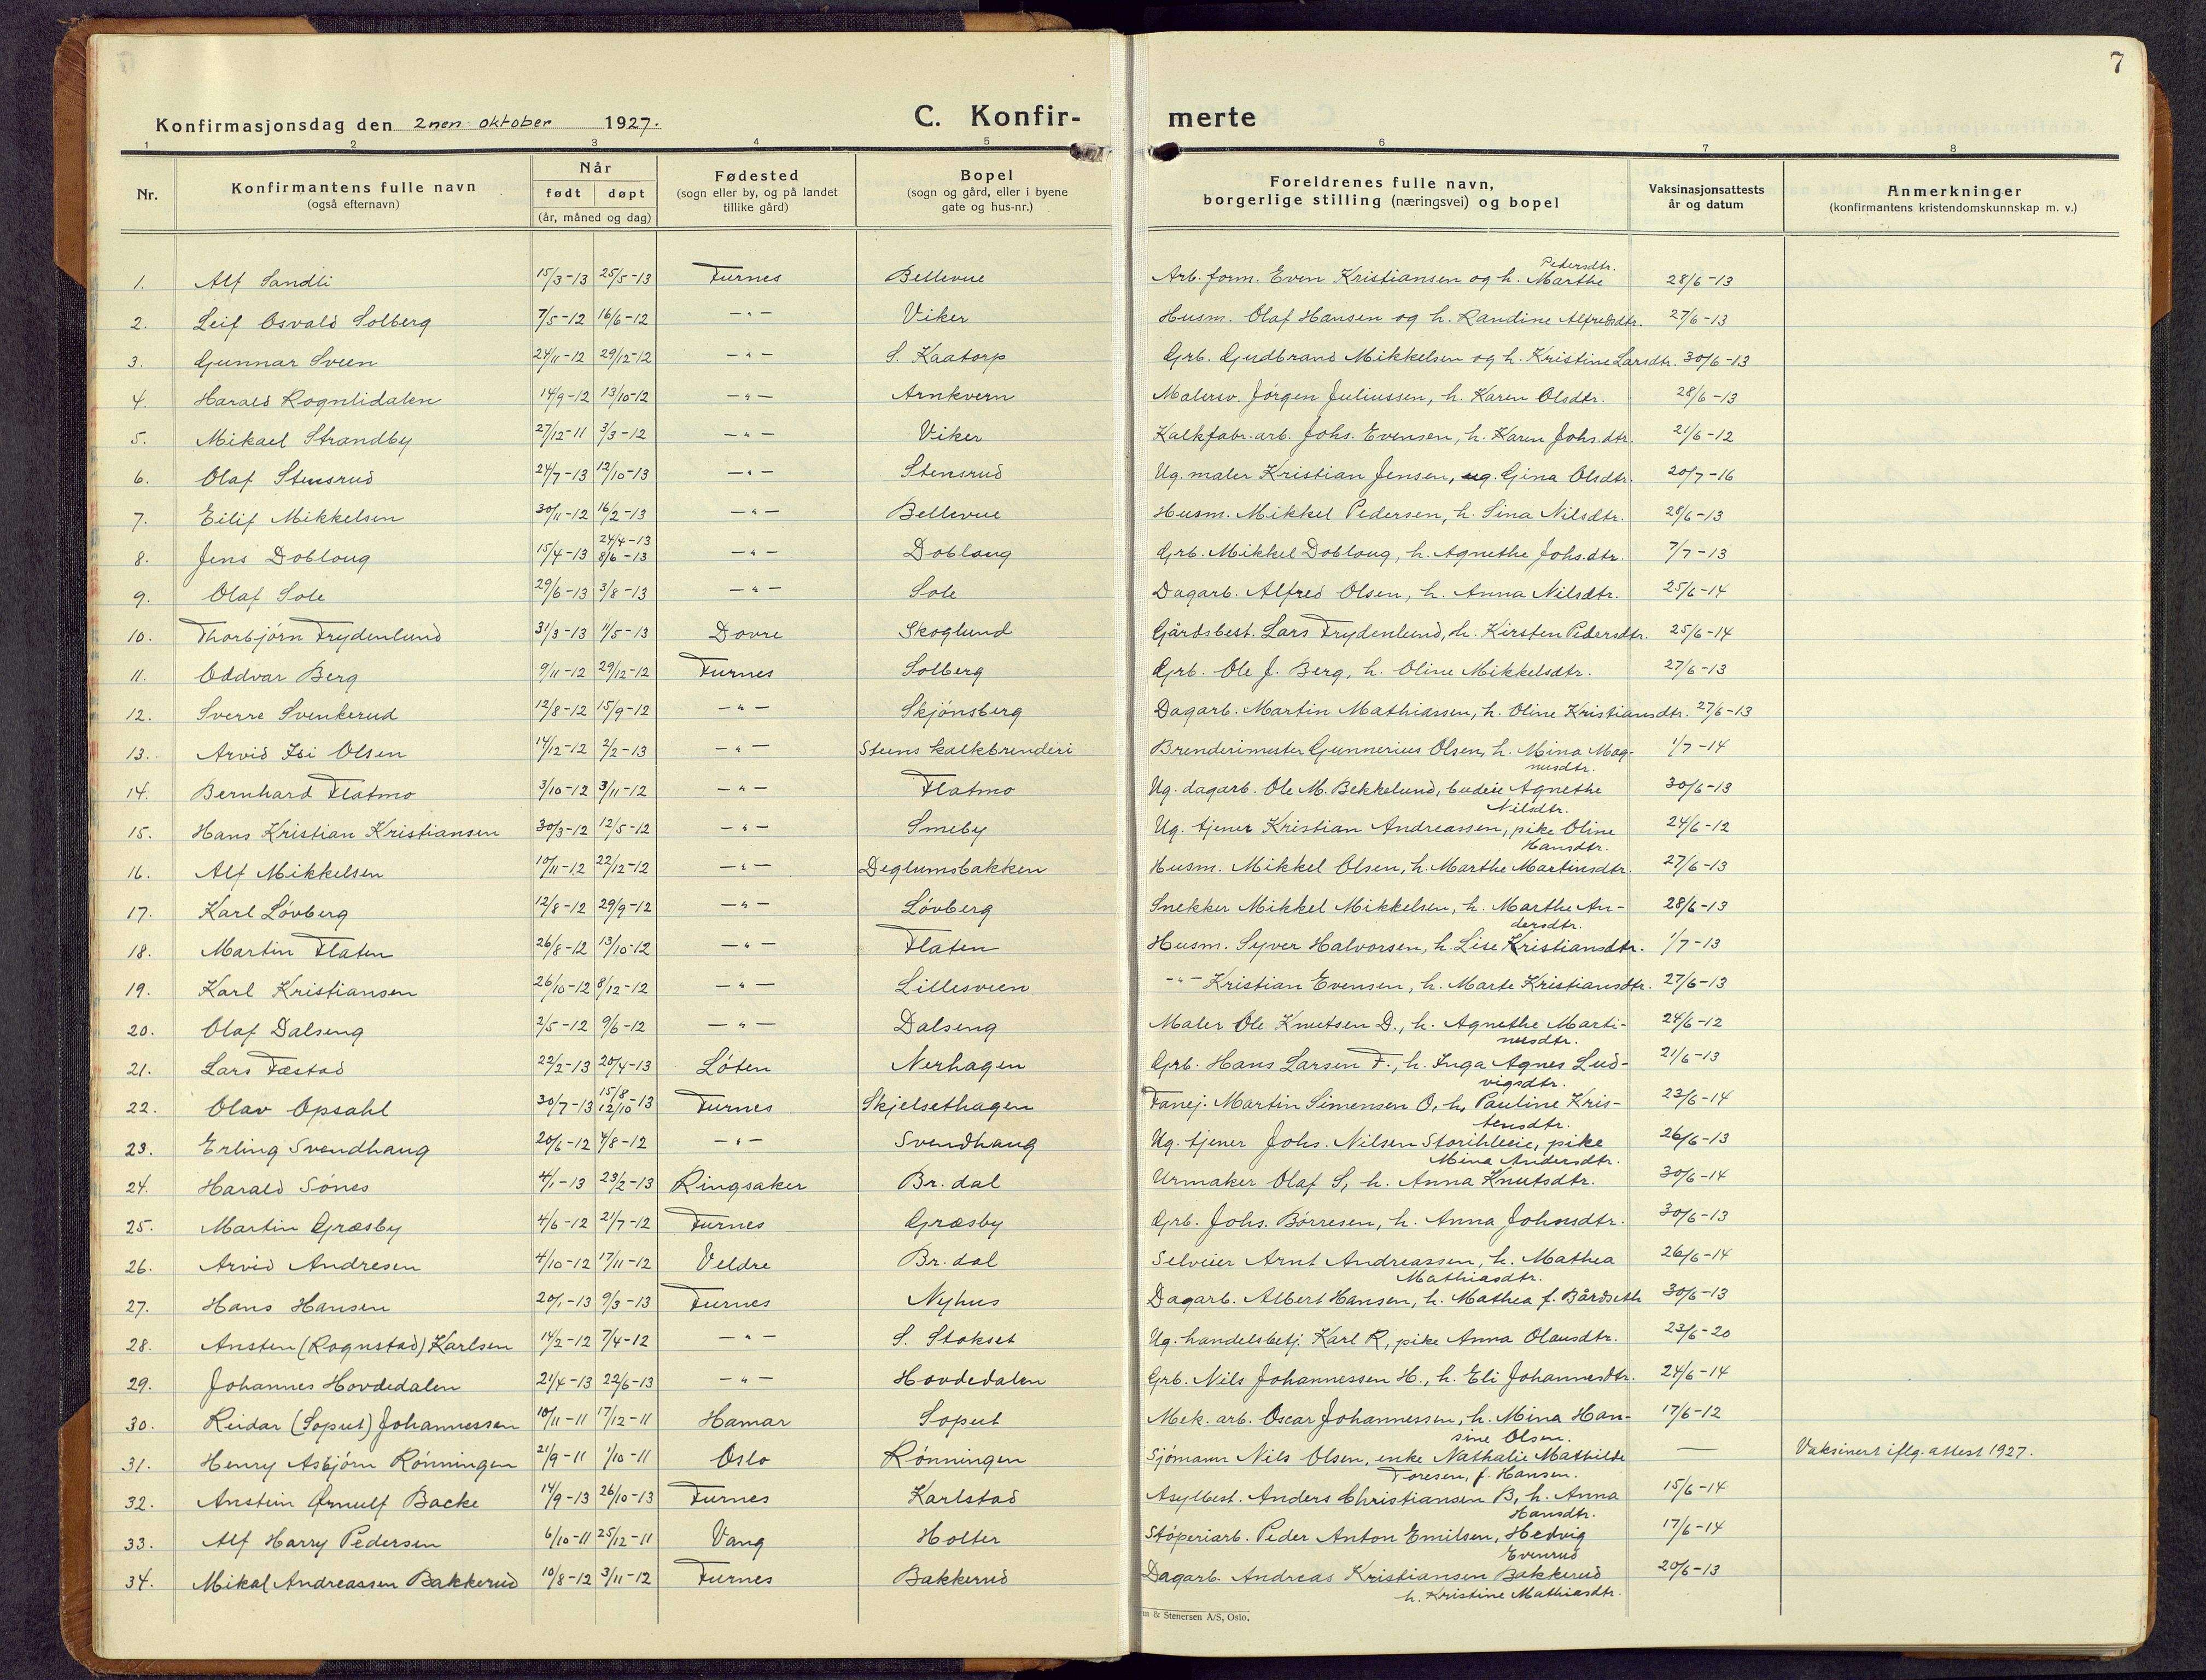 7
Konfirmasjonsdag den 2nen oktober 1927.
C. Konfir-
merte
1 2 3 4 5 6 7 8
Nr.
Konfirmantens fulle navn
(også efternavn)
Når
født døpt
(år, måned og dag)
Fødested
(sogn eller by, og på landet
tillike gård)
Bopel
(sogn og gård, eller i byene
gate og hus-nr.)
Foreldrenes fulle navn,
borgerlige stilling (næringsvei) og bopel
Vaksinasjonsattests
år og datum
Anmerkninger
(konfirmantens kristendomskunnskap m. v.)
Pedersdtr.
1. Alf Sandli 15/3-13 25/5-13 Furnes Bellevue Arb. form. Even Kristiansen og h. Marthe 28/6-13
2. Leif Osvald Solberg 7/5-12 16/6-12 -"- Viker Husm. Olaf Hansen og h. Randine Alfredsdtr. 27/6-13
3. Gunnar Sveen 24/11-12 29/12-12 -"- S. Kaatorp Grb. Gudbrand Mikkelsen og h. Kristine Larsdtr. 30/6-13
4. Harald Rognlidalen 14/9-12 13/10-12 -"- Arnkvern Malersv. Jørgen Juliussen, h. Karen Olsdtr. 28/6-13
5. Mikael Strandby 27/12-11 3/3-12 -"- Viker Kalkfabr.arb. Johs. Evensen, h. Karen Johs.dtr. 21/6-12
6. Olaf Stensrud 24/7-13 12/10-13 -"- Stensrud Ug. maler Kristian Jensen, ug. Gina Olsdtr. 20/7-16
7. Eilif Mikkelsen 30/11-12 16/2-13 -"- Bellevue Husm. Mikkel Pedersen, h. Sina Nilsdtr. 28/6-13
24/4-13
8. Jens Dobloug 15/4-13 8/6-13 -"- Dobloug Grb. Mikkel Dobloug, h. Agnethe Johs.dtr. 7/7-13
9. Olaf Sole 29/6-13 3/8-13 -"- Sole Dagarb. Alfred Olsen, h. Anna Nilsdtr. 25/6-14
10. Thorbjørn Frydenlund 31/3-13 11/5-13 Dovre Skoglund Gårdsbest. Lars Frydenlund, h. Kirsten Pedersdtr. 25/6-14
11. Oddvar Berg 9/11-12 29/12-12 Furnes Solberg Grb. Ole J. Berg, h. Oline Mikkelsdtr. 27/6-13
12. Sverre Svenkerud 12/8-12 15/9-12 -"- Skjønsberg Dagarb. Martin Mathiassen, h. Oline Kristiansdtr. 27/6-13
13. Arvid Isi Olsen 14/12-12 2/2-13 -"- Steens kalkbrenderi Brenderimester Gunnerius Olsen, h. Mina Mag- 1/7-14
nusdtr.
14. Bernhard Flatmo 3/10-12 3/11-12 -"- Flatmo Ug. dagarb. Ole M. Bekkelund, budeie Agnethe 30/6-13
Nilsdtr.
15. Hans Kristian Kristiansen 30/3-12 12/5-12 -"- Smeby Ug. tjener Kristian Andreassen, pike Oline 24/6-12
Hansdtr.
16. Alf Mikkelsen 10/11-12 22/12-12 -"- Deglumsbakken Husm. Mikkel Olsen, h. Marthe Martinsdtr. 27/6-13
17. Karl Løvberg 12/8-12 29/9-12 -"- Løvberg Snekker Mikkel Mikkelsen, h. Marthe An- 28/6-13
dersdtr.
18. Martin Flaten 26/8-12 13/10-12 -"- Flaten Husm. Syver Halvorsen, h. Lise Kristiansdtr. 1/7-13
19. Karl Kristiansen 26/10-12 8/12-12 -"- Lillesveen -"- Kristian Evensen, h. Marte Kristiansdtr. 27/6-13
20. Olaf Dalseng 2/5-12 9/6-12 -"- Dalseng Maler Ole Knutsen D., h. Agnethe Marti- 24/6-12
nusdtr.
21. Lars Fæstad 22/2-13 20/4-13 Løten Nerhagen Grb. Hans Larsen F., h. Inga Agnes Lud- 21/6-13
vigsdtr.
15/8
22. Olav Opsahl 30/7-13 12/10-13 Furnes Skjelsethagen Fanej. Martin Simensen O, h. Pauline Kris- 23/6-14
tensdtr.
23. Erling Svendhaug 20/6-12 4/8-12 -"- Svendhaug Ug. tjener Johs. Nilsen Storihleeie, pike 26/6-13
Mina Andersdtr.
24. Harald Sønes 4/1-13 23/2-13 Ringsaker Br. dal Urmaker Olaf S, h. Anna Knutsdtr. 30/6-14
25. Martin Græsby 4/6-12 21/7-12 Furnes Græsby Grb. Johs. Børresen, h. Anna Johnsdtr. 30/6-13
26. Arvid Andresen 4/10-12 17/11-12 Veldre Br. dal Selveier Arnt Andreassen, h. Mathea 26/6-14
Mathiasdtr.
27. Hans Hansen 20/1-13 9/3-13 Furnes Nyhus Dagarb. Albert Hansen, h. Mathea f. Bårdseth 30/6-13
28. Ansten (Rognstad) Karlsen 14/2-12 7/4-12 -"- S. Stokset Ug. handelsbetj. Karl R, pike Anna Olausdtr. 23/6-20
29. Johannes Hovdedalen 21/4-13 22/6-13 -"- Hovdedalen Grb. Nils Johannessen H., h. Eli Johannesdtr. 24/6-14
30. Reidar (Soput) Johannessen 10/11-11 17/12-11 Hamar Soput Mek. arb. Oscar Johannessen, h. Mina Han- 17/6-12
sine Olsen.
31. Henry Asbjørn Rønningen 21/9-11 1/10-11 Oslo Rønningen Sjømann Nils Olsen, enke Nathalie Mathilde — Vaksinert iflg. attest 1927.
Toresen, f. Hansen.
32. Anstein Ørnulf Backe 14/9-13 26/10-13 Furnes Karlstad Asylbest. Anders Christiansen B, h. Anna 15/6-14
Hansdtr.
33. Alf Harry Pedersen 6/10-11 25/12-11 Vang Holter Støperiarb. Peder Anton Emilsen, Hedvig 17/6-14
Evenrud
34. Mikal Andreassen Bakkerud 10/8-12 3/11-12 Furnes Bakkerud Dagarb. Andreas Kristiansen Bakkerud 20/6-13
h. Kristine Mathiasdtr.
& Stenersen A/S, Oslo.